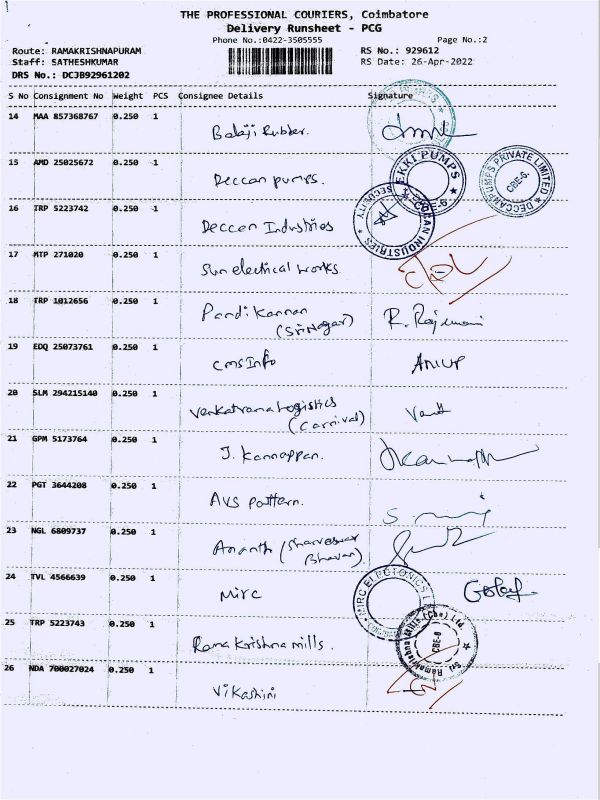 THE PROFESSIONAL COURIERS, Coimbatore
Delivery Runsheet - PCG
Phone No.:0422-3505555 Page No.:2
Route: RAMAKRISHNAPURAM RS No.: 929612
Staff: SATHESHKUMAR RS Date: 26-Apr-2022
DRS No.: DCJB92961202
S No Consignment No Weight PCS Consignee Details Signature
14 MAA 857368767 0.250 1
Balaji Rubber.
15 AMD 25025672 0.250 1
EKKI PUMPS CBE-6
DECCANPUMPS PRIVATE LIMITED CBE-6.
Deccan pumps.
16 TRP 5223742 0.250 1
DECCAN INDUSTRIES SECURITY
Deccan Industries
17 MTP 271020 0.250 1
Sun electrical works
18 TRP 1012656 0.250 1
Pandi Kannan R. Rajumani
(Sri Nagar)
19 EDQ 25073761 0.250 1
CMS Info ANUP
20 SLM 294215140 0.250 1
Venkatrama Logistics
(Carnival)
21 GPM 5173764 0.250 1
J. Kannappan.
22 PGT 3644208 0.250 1
AVS pattern.
23 NGL 6809737 0.250 1
Ananth (Sharveswar
Bhavan)
24 TVL 4566639 0.250 1
MIRC
25 TRP 5223743 0.250 1
Sri Ramakrishna Mills (Cbe) Ltd CBE-6
Ramakrishna mills.
26 NDA 700027024 0.250 1
Vikashini